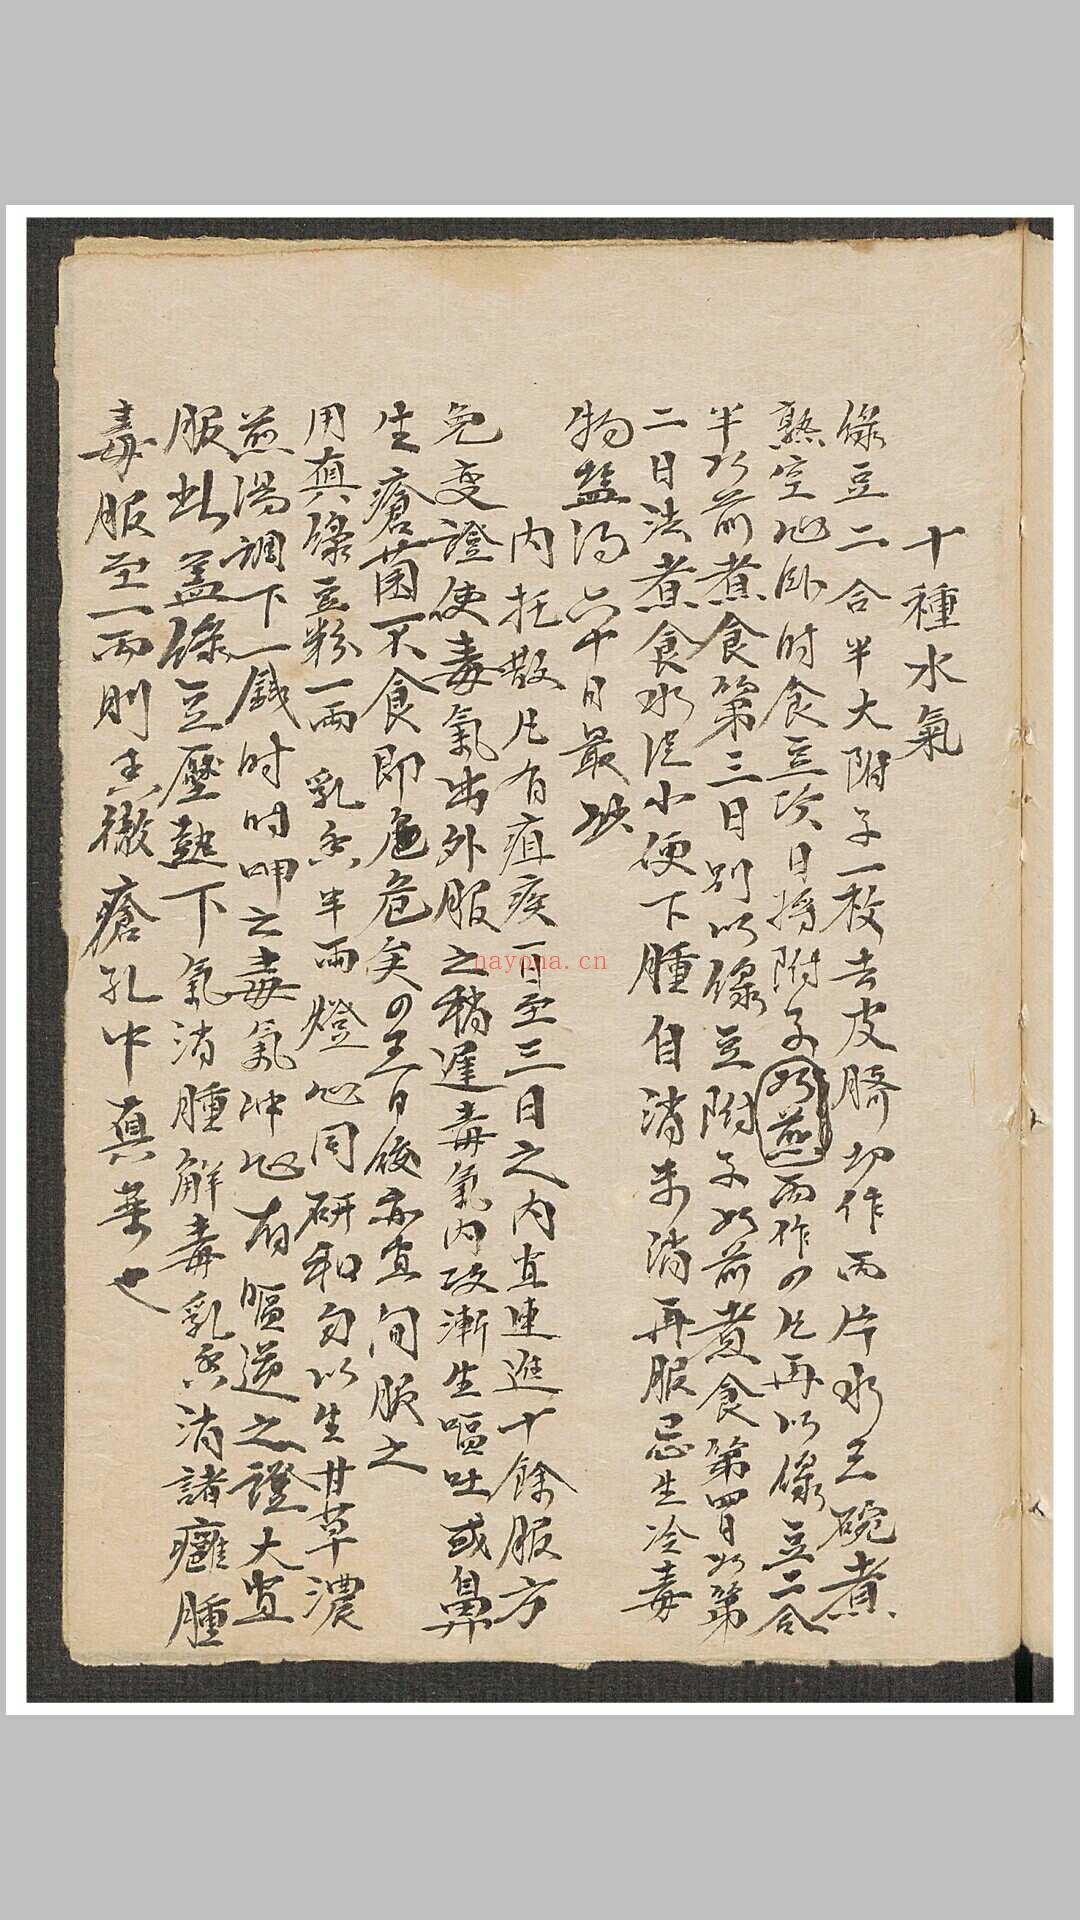 十種水氣
綠豆二合半大附子一枚去皮臍切作兩片水三碗煮
熟空心臥时食豆次日將附子兩作四片再以綠豆二合
半如前煮食第三日別以綠豆附子如前煮食第四日如第
二日法煮食水從小便下腫自消未消再服忌生冷毒
物盐酒六十日最妙
內托散凡有疽疾一日至三日之內宜連進十餘服方
免变證使毒氣出外服之稍遲毒氣內攻漸生嘔吐或鼻
生瘡菌不食即危矣四五日後亦宜间服之
用真綠豆粉一兩乳香半兩燈心同研和匀以生甘草濃
煎湯調下一錢时时呷之毒氣冲心有嘔逆之證大宜
服此蓋綠豆壓熱下氣消腫解毒乳香消諸癰腫
毒服至一兩則香徹瘡孔中真藥也
nayona.cn